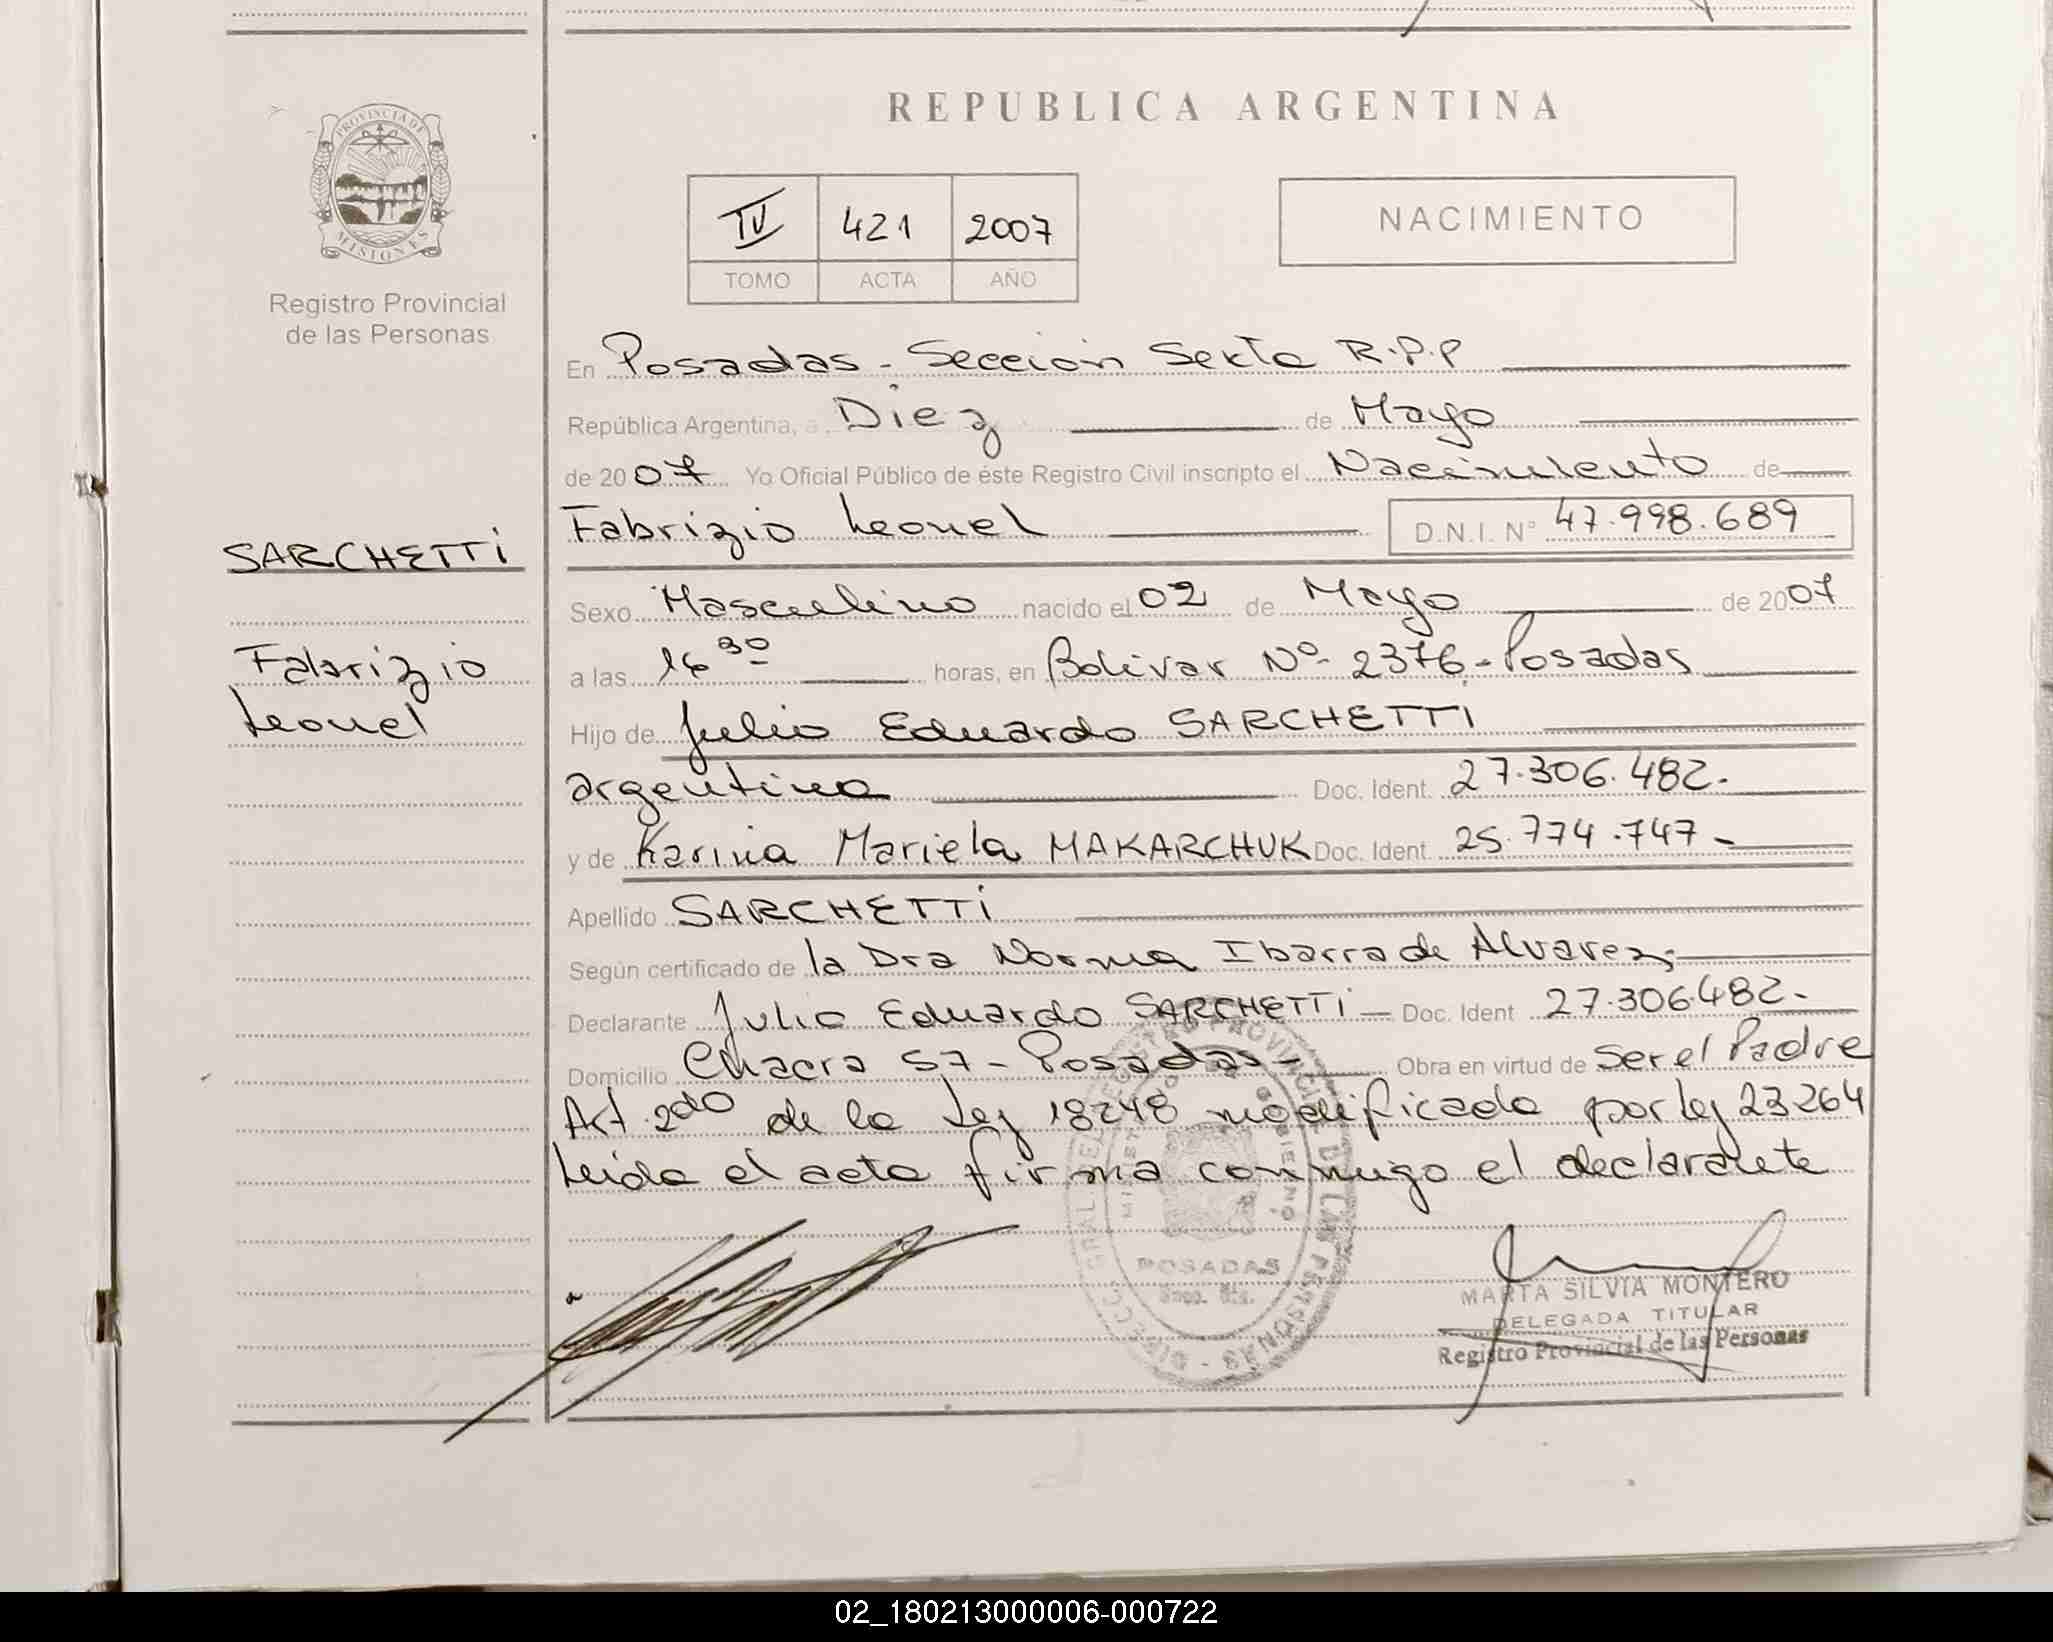 REPUBLICA ARGENTINA
PROVINCIA DE
MISIONES
Registro Provincial
de las Personas
IV 421 2007
TOMO ACTA AÑO
NACIMIENTO
En Posadas - Sección Sexta R.P.P
República Argentina, a Diez de Mayo
de 2007 Yo Oficial Público de éste Registro Civil inscripto el Nacimiento de
SARCHETTi
Fabrizio Leonel D.N.I. Nº 47.998.689
Sexo Masculino nacido el 02 de Mayo de 2007
Fabrizio
Leonel
a las 16 30 horas, en Bolivar Nº 2376 - Posadas
Hijo de Julio Eduardo SARCHETTI
argentino Doc. Ident. 27.306.482.
y de Karina Mariela MAKARCHUK Doc. Ident. 25.774.747 -
Apellido SARCHETTi
Según certificado de la Dra Norma Ibarra de Alvarez;
Declarante Julio Eduardo SARCHETTi — Doc. Ident 27.306.482.
Domicilio Chacra 57 - Posadas - Obra en virtud de Ser el Padre
Art. 2do de la Ley 18248 modificada por ley 23264
Leida el acta firma conmigo el declarante
POSADAS
MARTA SILVIA MONTERO
DELEGADA TITULAR
Registro Provincial de las Personas
02_180213000006-000722